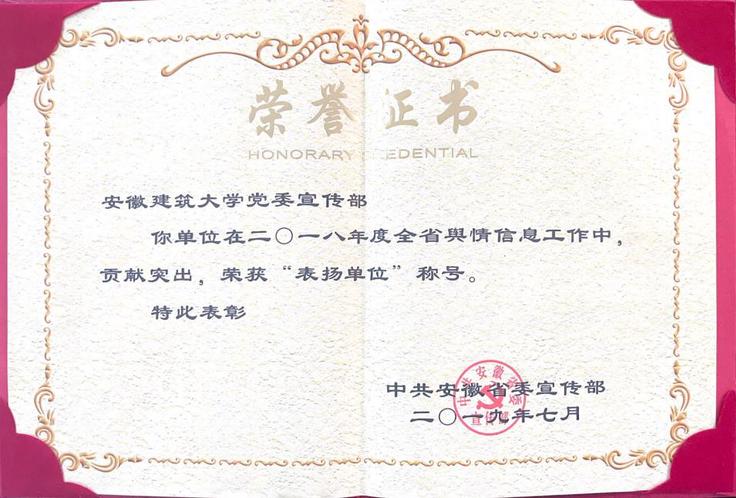 荣誉证书
HONORARY CREDENTIAL
安徽建筑大学党委宣传部
你单位在二〇一八年度全省舆情信息工作中，
贡献突出，荣获“表扬单位”称号。
特此表彰
中共安徽省委宣传部
二〇一九年七月
中共安徽省委
宣传部